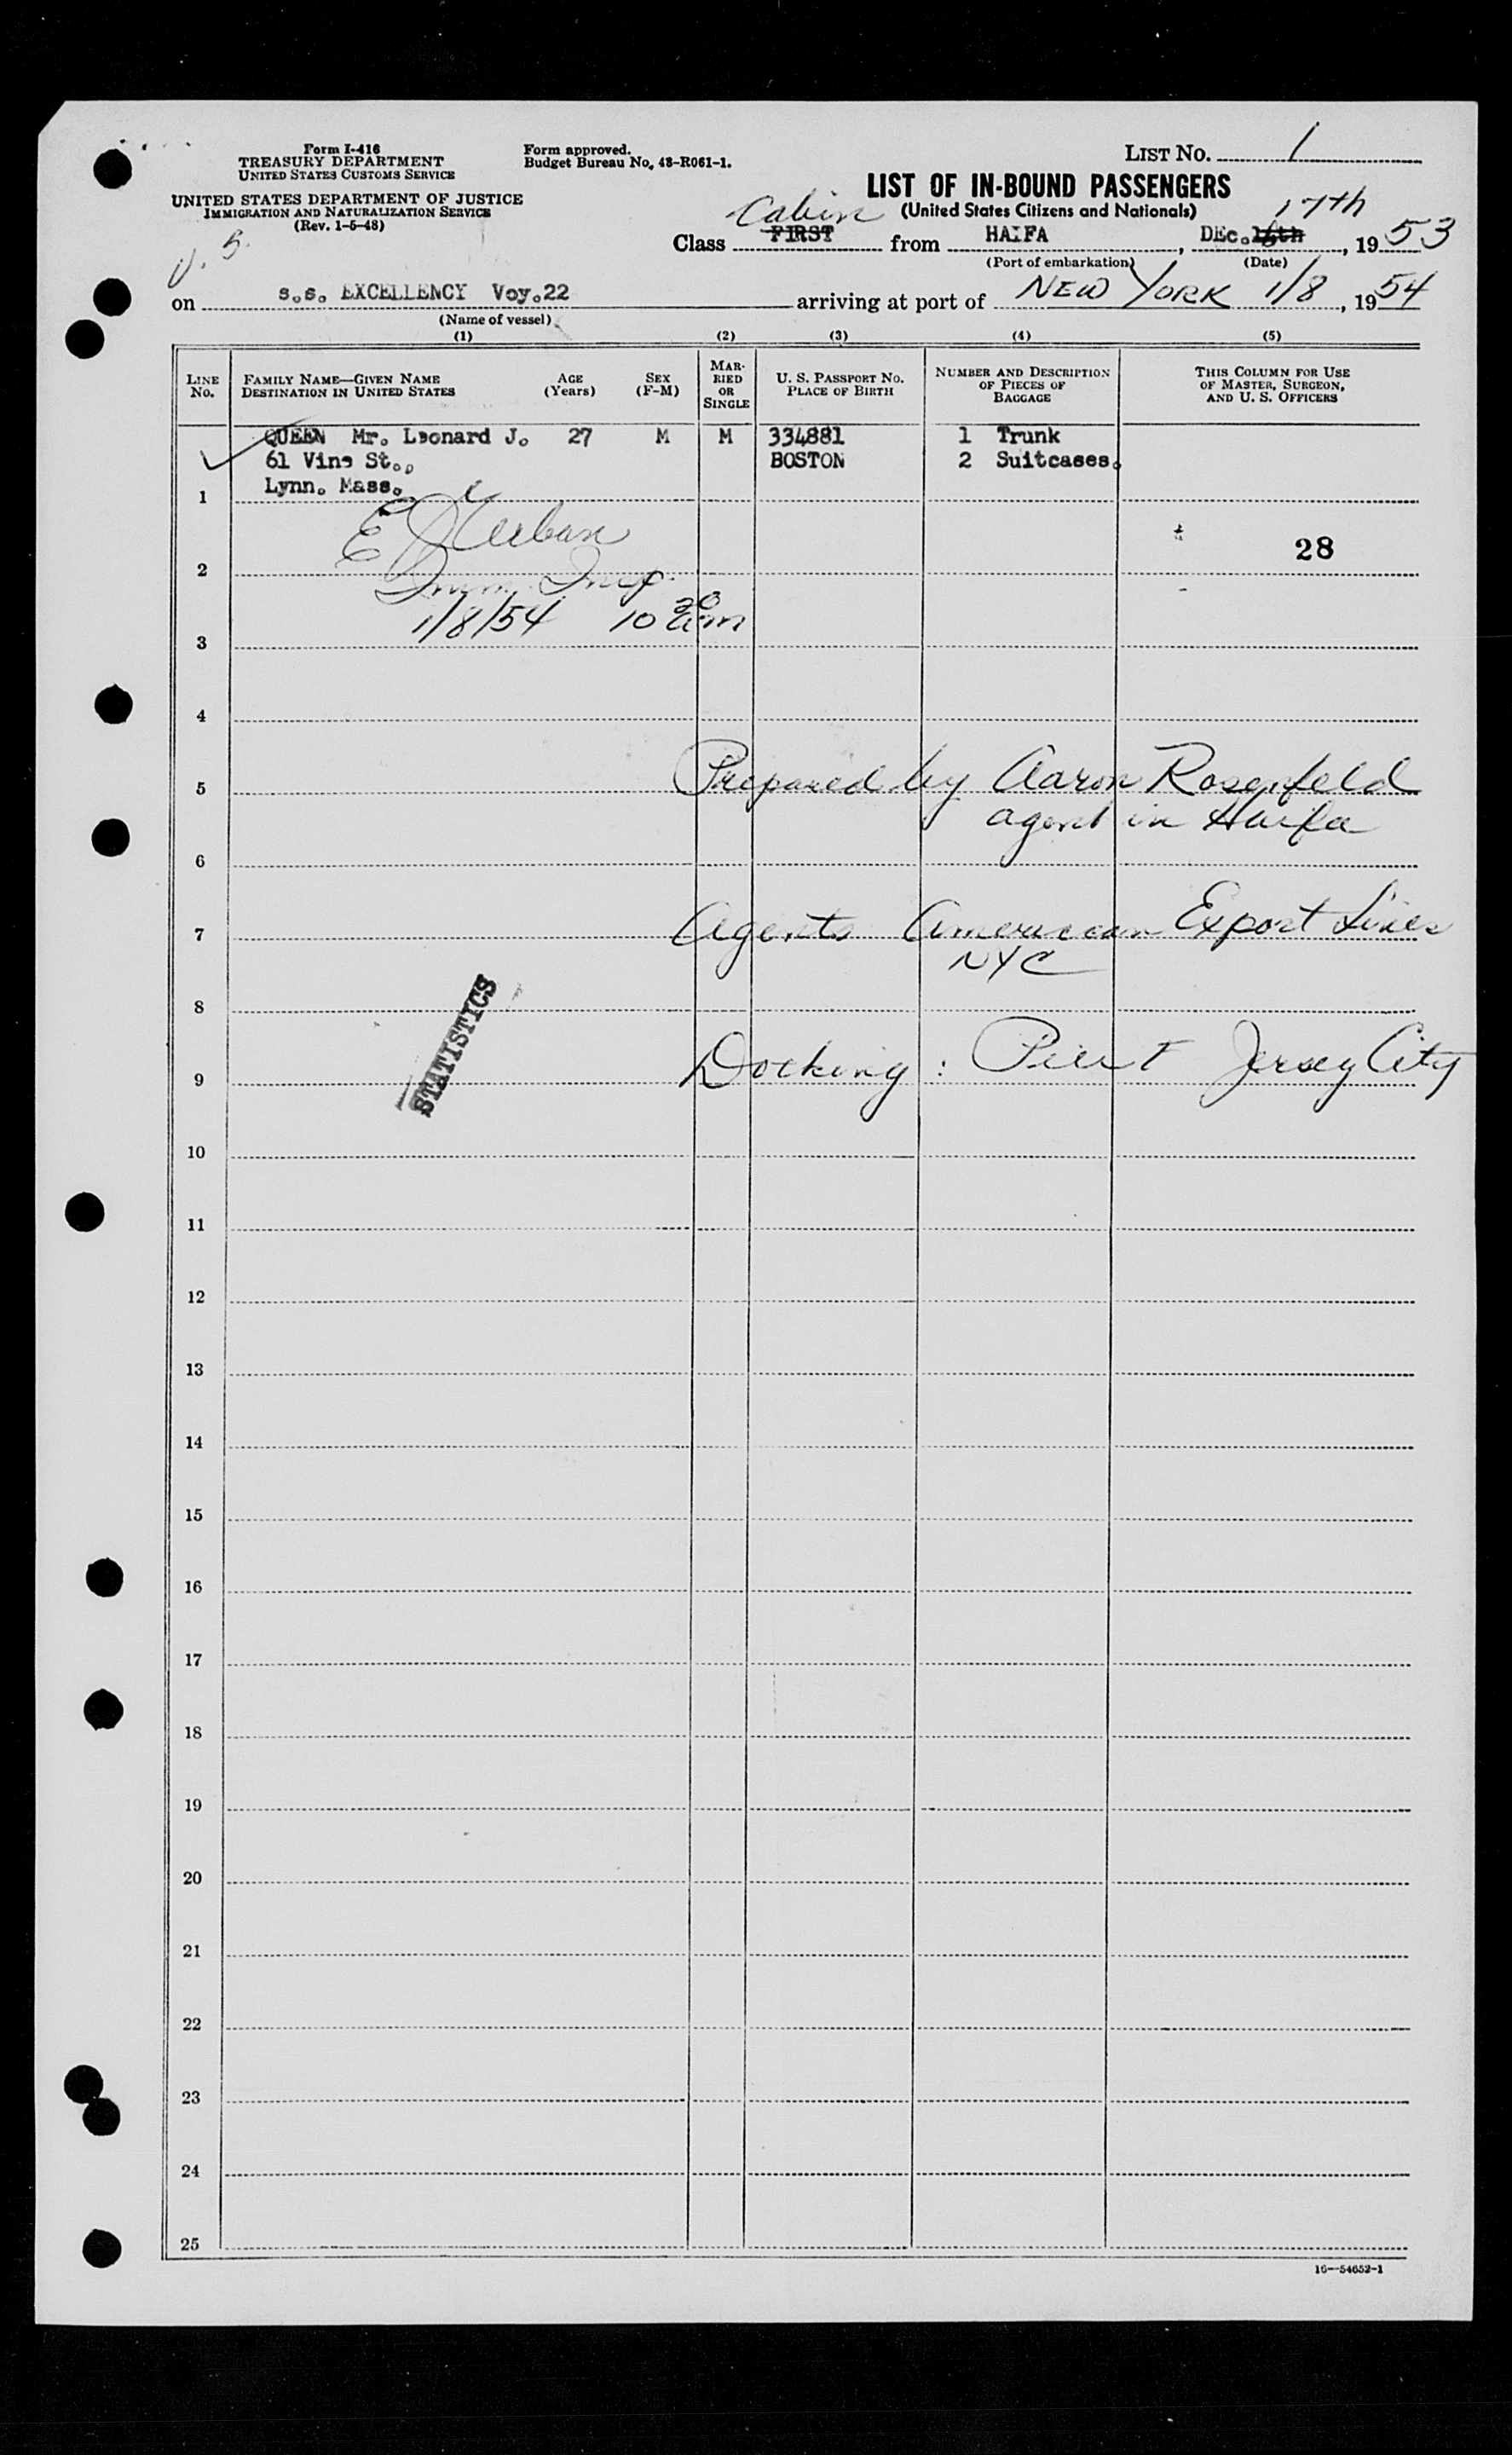 Form I-416
TREASURY DEPARTMENT
UNITED STATES CUSTOMS SERVICE
UNITED STATES DEPARTMENT OF JUSTICE
IMMIGRATION AND NATURALIZATION SERVICE
(Rev. 1-5-48)
Form approved.
Budget Bureau No. 48-R061-1.
LIST NO. 1
LIST OF IN-BOUND PASSENGERS
(United States Citizens and Nationals)
Cabin 17th
Class FIRST from HAIFA, DEc. 16th, 1953
(Port of embarkation) (Date)
U.S.
on s.s. EXCELLENCY Voy.22 arriving at port of NEW YORK 1/8, 1954
(Name of vessel)
(1) (2) (3) (4) (5)
LINE NO.
FAMILY NAME—GIVEN NAME
DESTINATION IN UNITED STATES
AGE (Years)
SEX (F-M)
MARRIED OR SINGLE
U. S. PASSPORT NO.
PLACE OF BIRTH
NUMBER AND DESCRIPTION OF PIECES OF BAGGAGE
THIS COLUMN FOR USE OF MASTER, SURGEON, AND U. S. OFFICERS
QUEEN Mr. Leonard J. 27 M M 334881 1 Trunk
61 Vine St., BOSTON 2 Suitcases.
1 Lynn. Mass.
E J Urban
28
2
Imm. Insp.
1/8/54 10 30 am
3
4
5 Prepared by Aaron Rosenfeld
agent in Haifa
6
7 Agents American Export Lines
NYC
8
STATISTICS
9 Docking: Pier F Jersey City
10
11
12
13
14
15
16
17
18
19
20
21
22
23
24
25
16—54652-1